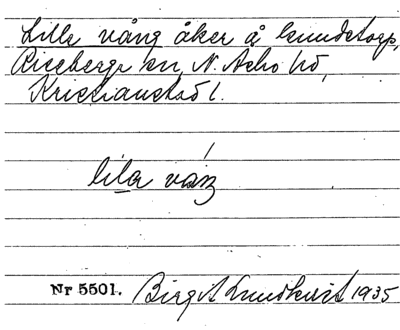 Lilla vång åker å Knudstorp,
Riseberga sn, N. Åsbo hd,
Kristianstad l.
lila våŋ
Nr 5501. Birgit Lundkvist 1935